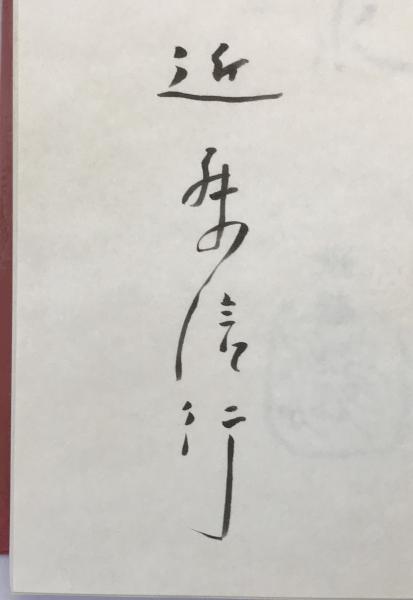 近藤信行